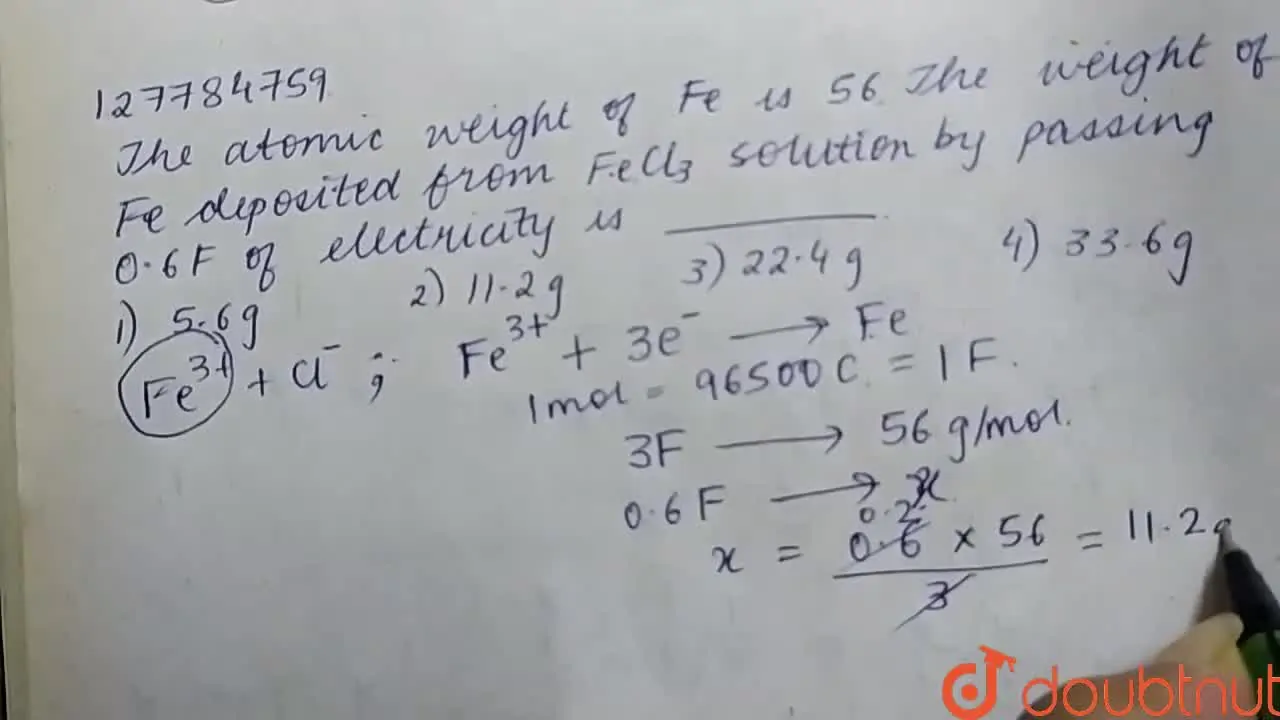 127784759
The atomic weight of Fe is 56. The weight of
Fe deposited from FeCl3 solution by passing
0.6F of electricity is ______
1) 5.6g 2) 11.2g 3) 22.4g 4) 33.6g
Fe³⁺ + Cl⁻ ; Fe³⁺ + 3e⁻ → Fe
1mol = 96500C = 1F.
3F → 56 g/mol.
0.6F → x
0.2
x = 0.6 × 56 = 11.2g
3
doubtnut